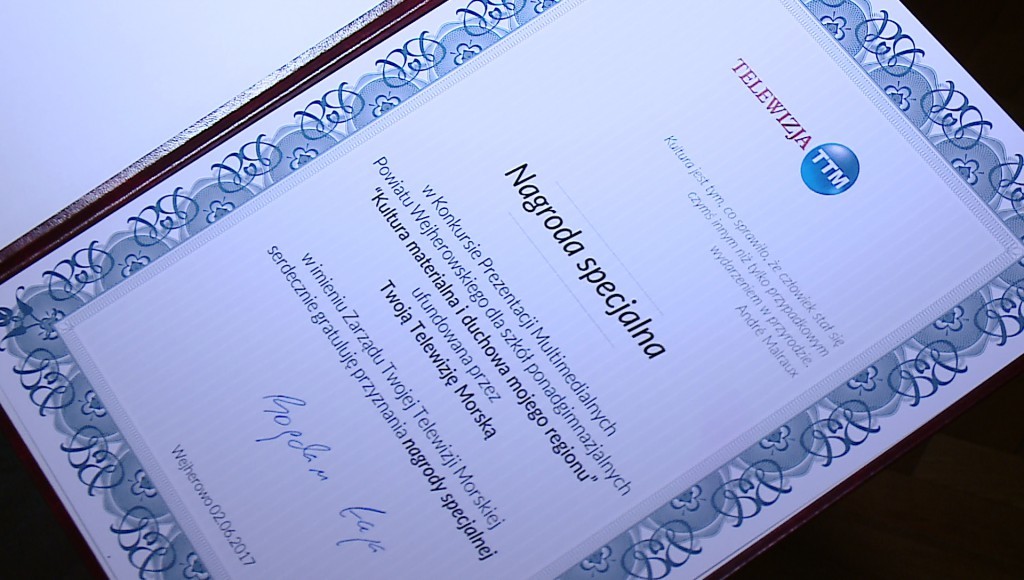 TELEWIZJA
TTM
Kultura jest tym, co sprawiło, że człowiek stał się
czymś innym niż tylko przypadkowym
wydarzeniem w przyrodzie.
André Malraux
Nagroda specjalna
w Konkursie Prezentacji Multimedialnych
Powiatu Wejherowskiego dla szkół ponadgimnazjalnych
"Kultura materialna i duchowa mojego regionu"
ufundowana przez
Twoją Telewizję Morską
w imieniu Zarządu Twojej Telewizji Morskiej
serdecznie gratuluję przyznania nagrody specjalnej
Bogdan
Wejherowo 02.06.2017